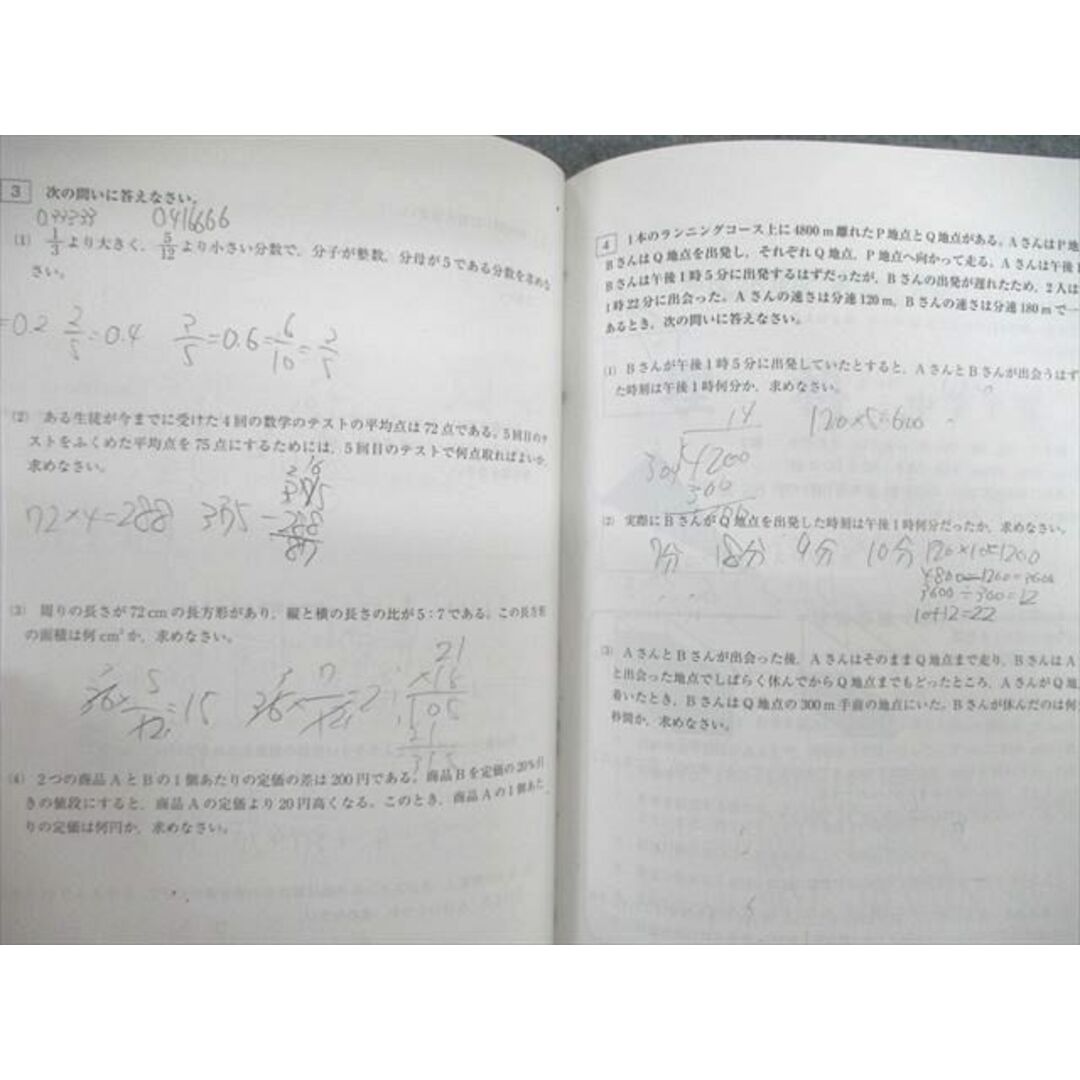 3 次の問いに答えなさい。
0.33333 0.416666
(1) 1/3 より大きく、5/12 より小さい分数で、分子が整数、分母が5である分数を求めな
さい。
=0.2 2/5=0.4 3/5=0.6=6/10=3/5
(2) ある生徒が今までに受けた4回の数学のテストの平均点は72点である。5回目のテ
ストをふくめた平均点を75点にするためには、5回目のテストで何点取ればよいか、
求めなさい。
72×4=288 375
-288
87
(3) 周りの長さが72cmの長方形があり、縦と横の長さの比が5:7である。この長方形
の面積は何cm²か、求めなさい。
36×5/12=15 36×7/12=21
21
×15
105
21
315
(4) 2つの商品AとBの1個あたりの定価の差は200円である。商品Bを定価の20%引
きの値段にすると、商品Aの定価より20円高くなる。このとき、商品Aの1個あた
りの定価は何円か、求めなさい。
4 1本のランニングコース上に4800m離れたP地点とQ地点がある。AさんはP地
BさんはQ地点を出発し、それぞれQ地点、P地点へ向かって走る。Aさんは午後1
Bさんは午後1時5分に出発するはずだったが、Bさんの出発が遅れたため、2人は
1時22分に出会った。Aさんの速さは分速120m、Bさんの速さは分速180mで一
あるとき、次の問いに答えなさい。
(1) Bさんが午後1時5分に出発していたとすると、AさんとBさんが出会うはず
た時刻は午後1時何分か、求めなさい。
14 120×5=600
4200
300
(2) 実際にBさんがQ地点を出発した時刻は午後1時何分だったか、求めなさい。
7分 18分 9分 10分 120×10=1200
4800-1200=3600
3600÷300=12
10+12=22
(3) AさんとBさんが出会った後、AさんはそのままQ地点まで走り、BさんはA
と出会った地点でしばらく休んでからQ地点までもどったところ、AさんがQ地
着いたとき、BさんはQ地点の300m手前の地点にいた。Bさんが休んだのは何分
秒間か、求めなさい。